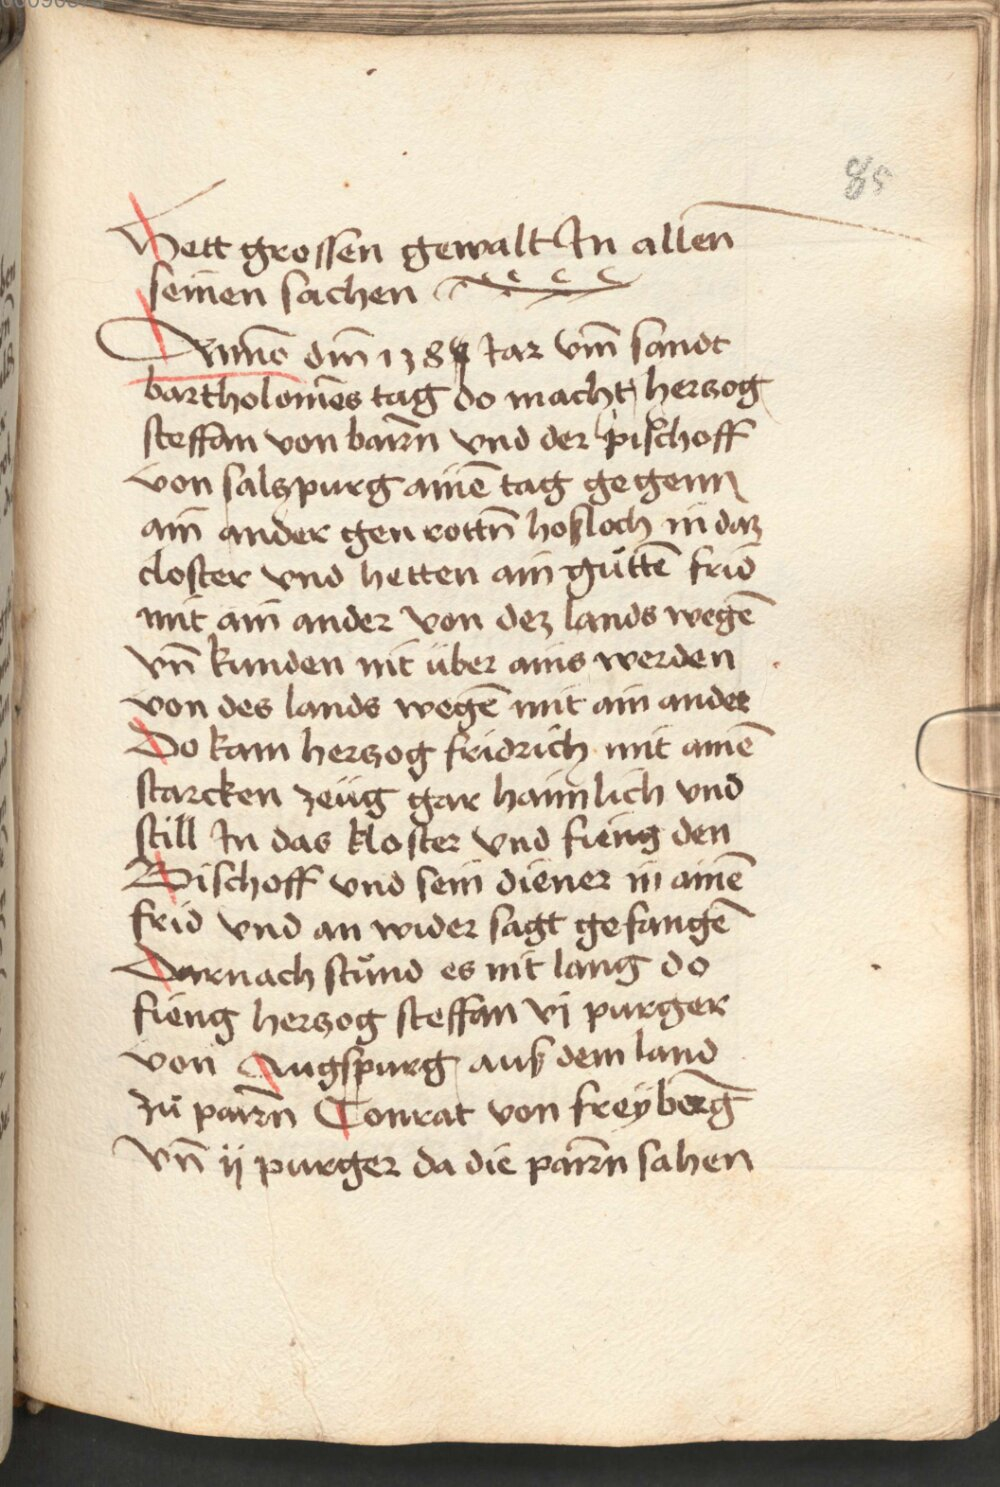 85
Hett grossen gewalt In allen
seinen sachen
Anno dm̄ 138 Jar vm̄ sandt
bartholomēs tag do macht herzog
steffan von bairn̄ vnd der pischoff
von salzpurg ainē tag gegenn
ain ander gen rottn̄ hoßloch in daz
closter vnd hetten ain gůttē frid
mit ain ander von dez lands wegē
vn̄ kunden nit über ains werden
von des lands wegē mit ain ander
Do kam herzog fridrich mit ainē
starcken zeüg gar haimlich vnd
still In das kloster vnd fieng den
Bischoff vnd sein diener in ainē
frid vnd an wider sagt gefangē
Darnach stůnd es nit lang do
fieng herzog steffan vj purger
von Augspurg auß dem land
zů pairn̄ Conrat von freÿberg
vn̄ ij purger da die pairn̄ sahen